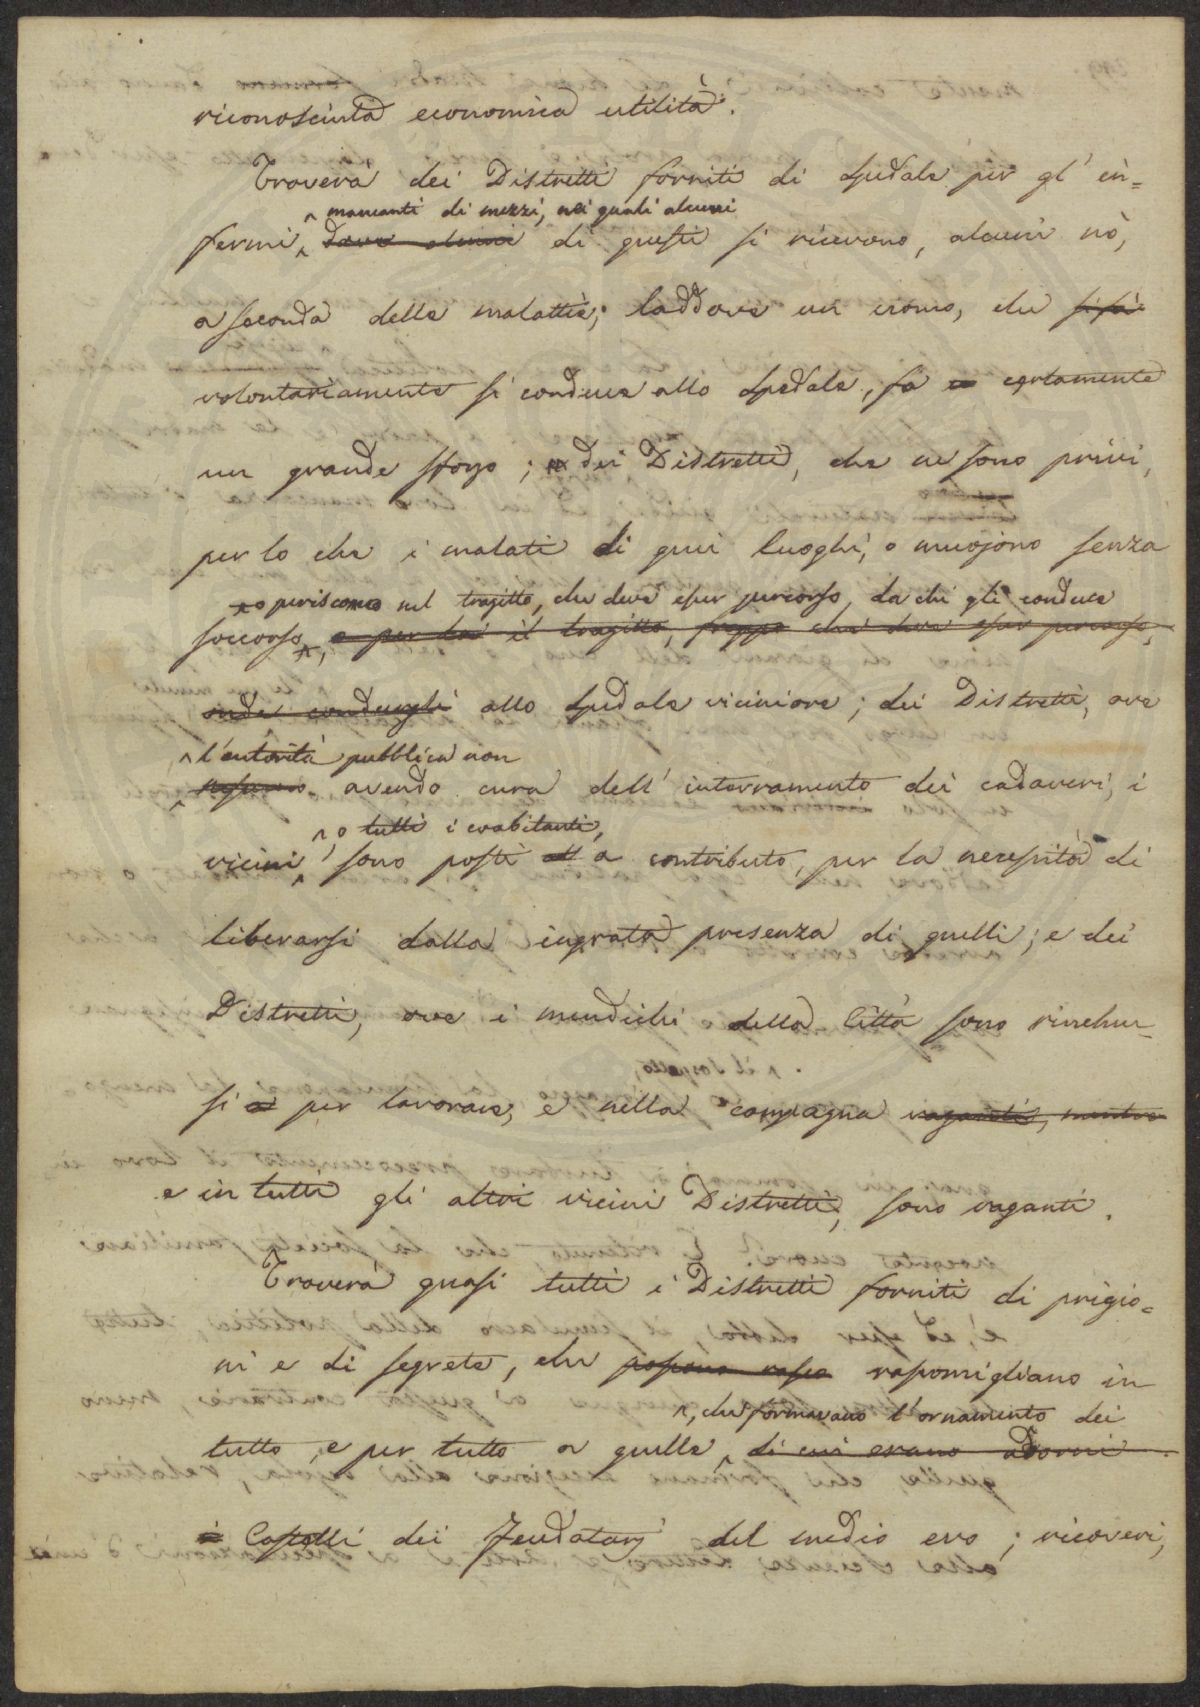 riconosciuta economica utilità.
Troverà dei Distretti forniti di Spedale per gl'in=
mancanti di mezzi, nei quali alcuni
fermi, dove alcuni di questi si ricevono, alcuni nò,
a seconda della malattia; laddove un uomo, che si fà
volontariamente si conduce allo Spedale, fa certamente
un grande sforzo; dei Distretti, che ne sono privi,
per lo che i malati di quei luoghi, o muojono senza
o periscono nel tragitto, che deve esser percorso, da chi gli conduce
soccorso, o per la il tragitto, troppo che deve esser percorso,
onde condurgli allo Spedale viciniore; dei Distretti, ove
l'autorità pubblica non
nessuno avendo cura dell'interramento dei cadaveri, i
, o tutti i coabitanti,
vicini, sono posti a contributo, per la necessità di
liberarsi dalla ingrata presenza di quelli; e dei
Distretti, ove i mendichi della Città sono rinchiu-
si a per lavorare, e nella campagna vaganti, mentre
e in tutti gli altri vicini Distretti, sono vaganti.
Troverà quasi tutti i Distretti forniti di prigio=
ni e di segrete, che possono rassomigliano in
, che formavano l'ornamento dei
tutto, e per tutto a quelle, di cui erano adorni
i Castelli dei Feudatarj del medio evo; ricoveri,